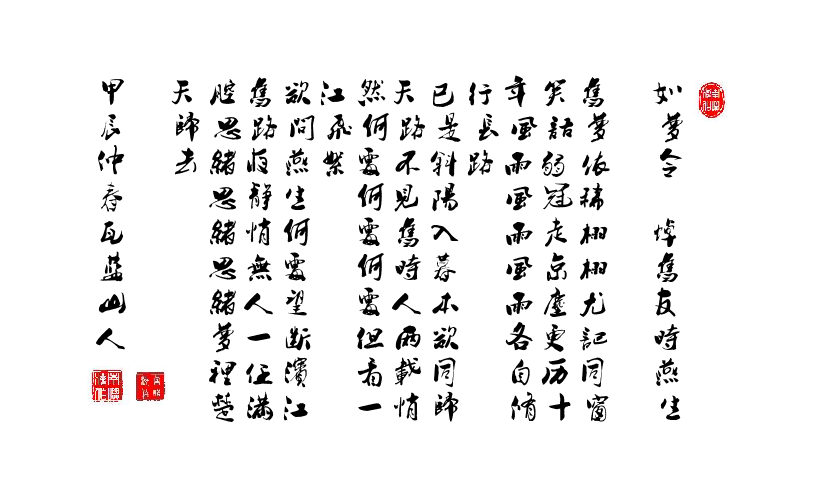 如夢令 悼舊友時燕生
舊夢依稀栩栩尤記同窗
笑語弱冠走京塵更历十
年風雨風雨風雨各自脩
行長路
已是斜陽入暮本欲同歸
天路不見舊時人兩載悄
然何處何處何處但看一
江飛絮
欲問燕生何處望斷濱江
舊路夜靜悄無人一任滿
腔思緒思緒思緒夢裡楚
天歸去
甲辰仲春瓦藍山人